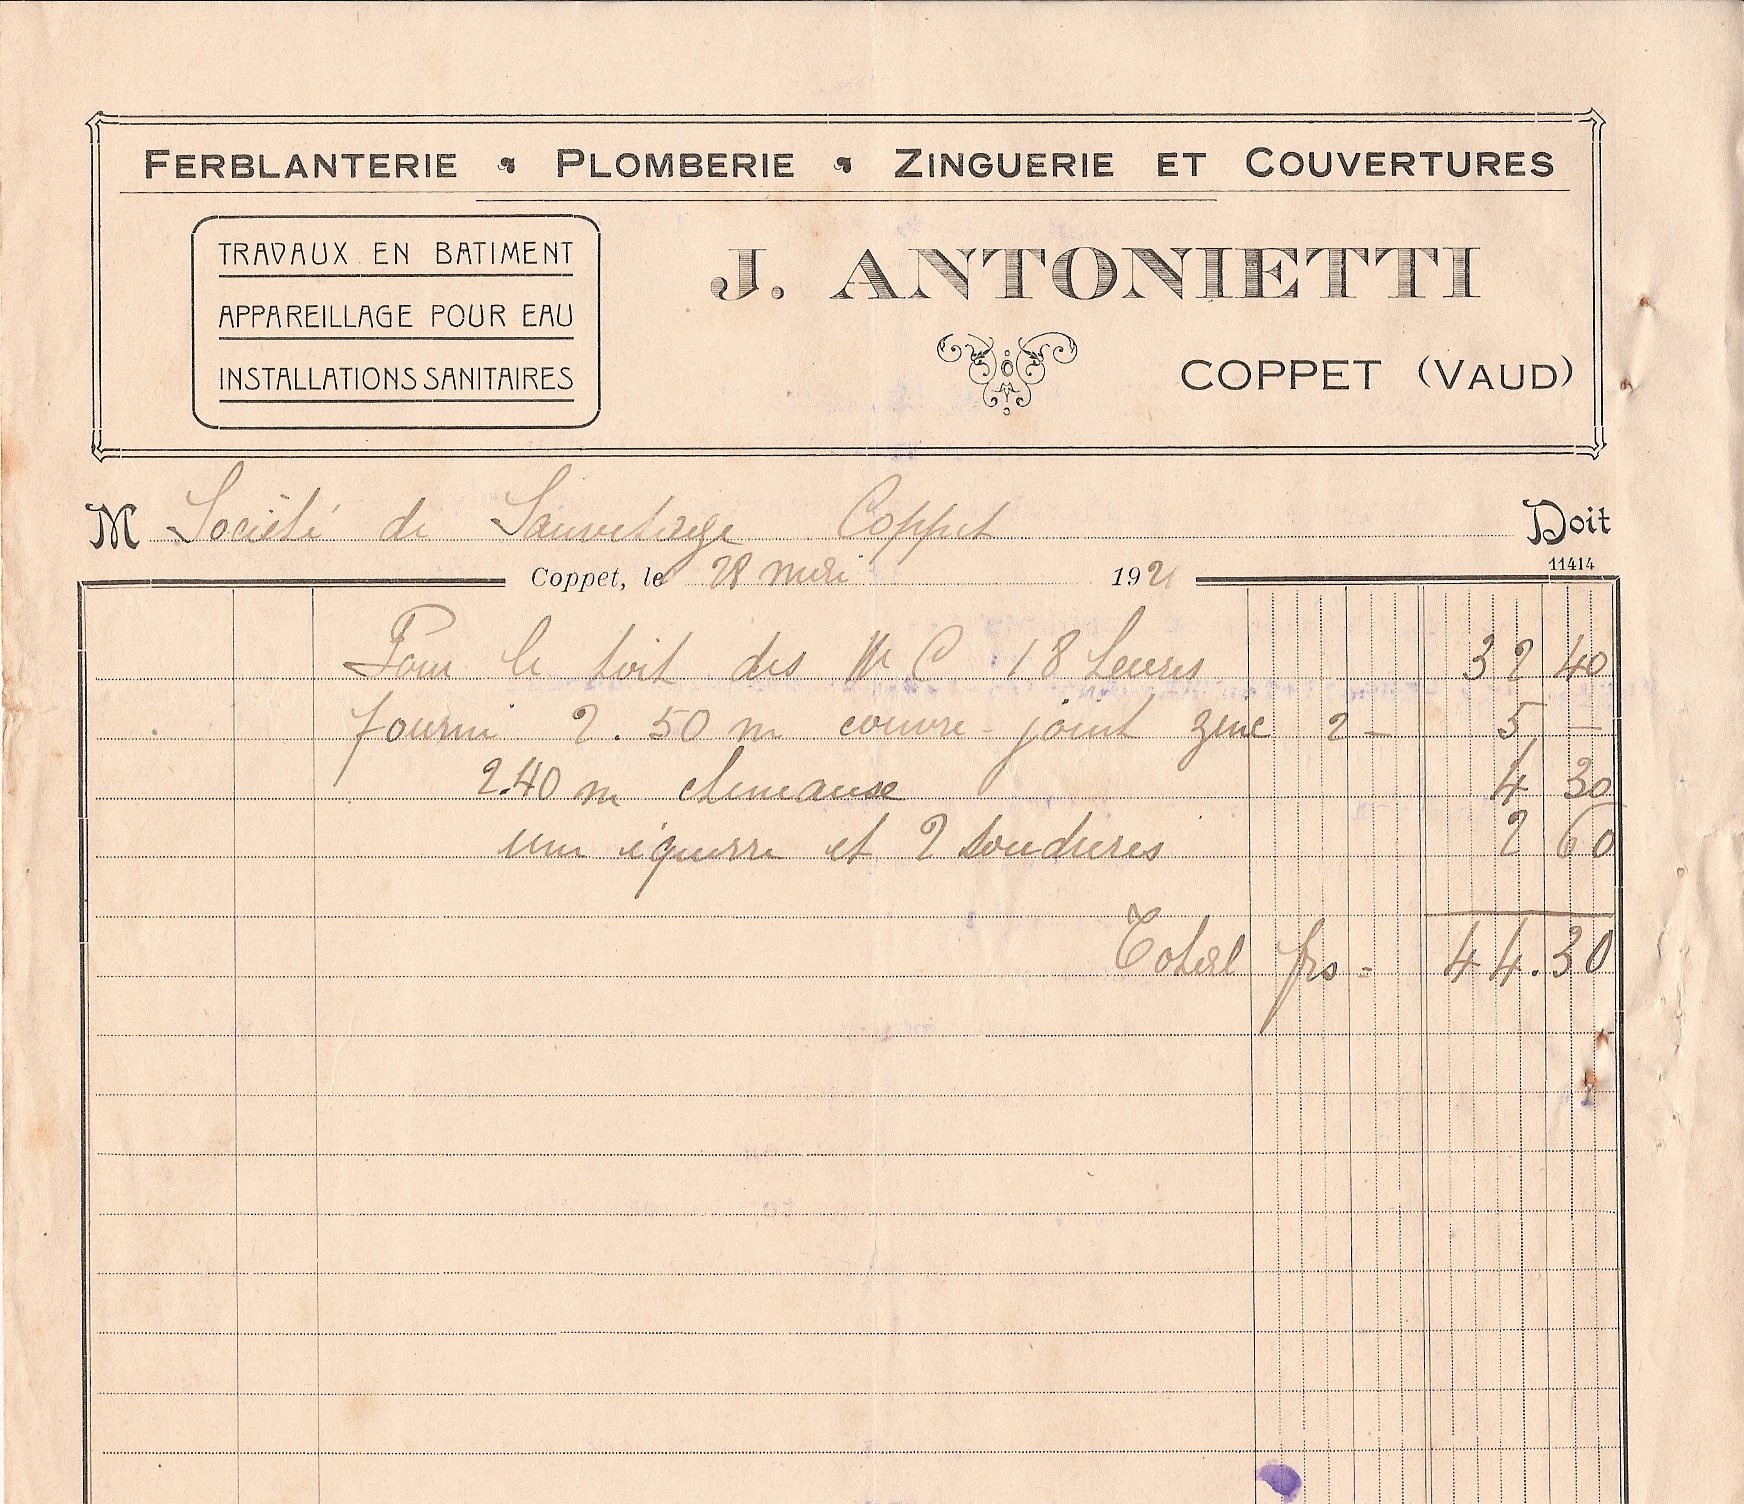 FERBLANTERIE • PLOMBERIE • ZINGUERIE ET COUVERTURES
TRAVAUX EN BATIMENT
APPAREILLAGE POUR EAU
INSTALLATIONS SANITAIRES
J. ANTONIETTI
COPPET (VAUD)
M Société de Sauvetage Coppet Doit
11414
Coppet, le 28 mai 1921
Pour le toit des W C 18 heures 32 40
fourni 2.50 m couvre-joint zinc 2 - 5 -
2.40 m 4 30
une équerre et 2 soudures 2 60
Total frs = 44.30